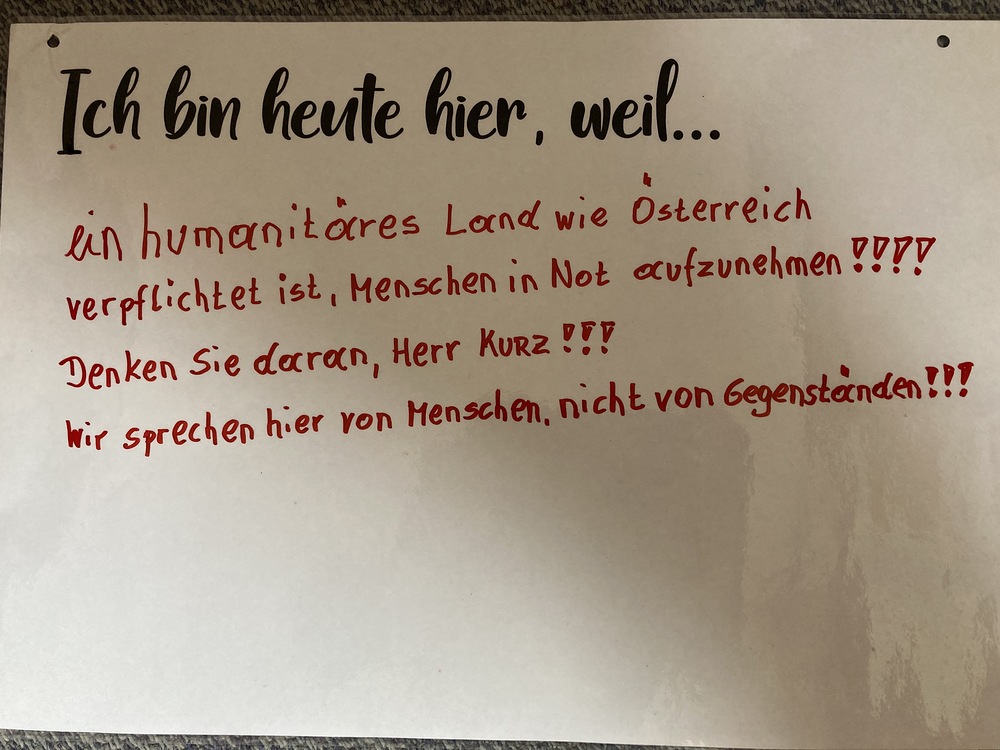 Ich bin heute hier, weil...
ein humanitäres Land wie Österreich
verpflichtet ist, Menschen in Not aufzunehmen!!!!
Denken Sie daran, Herr KURZ!!!
Wir sprechen hier von Menschen, nicht von Gegenständen!!!